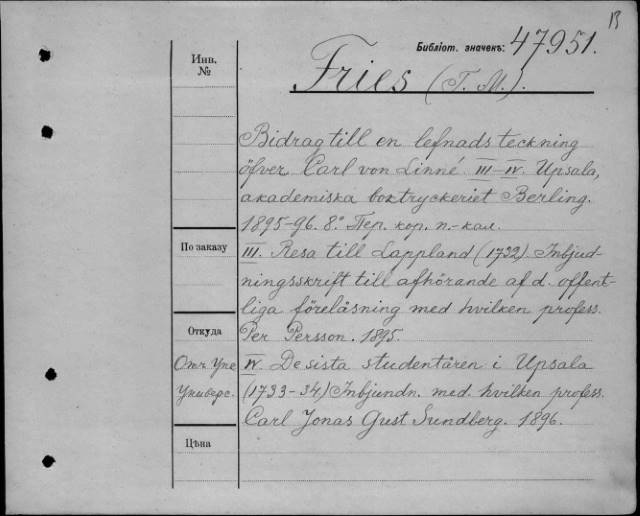 B
Библіот. значекъ: 47951.
Инв.
№
Fries (T. M.).
Bidrag till en lefnadsteckning
öfver Carl von Linné III–IV. Upsala,
akademiska boktryckeriet Berling.
1895-96. 8° Пер. кор. п.-кал.
По заказу
III. Resa till Lappland (1732) Inbjud-
ningsskrift till afhörande af d. offent-
liga föreläsning med hvilken profess.
Откуда
Per Persson. 1895.
Отч. Упс
Универс.
IV. De sista studentåren i Upsala
(1733-34) Inbjundn. med hvilken profess.
Carl Jonas Gust Sundberg. 1896.
Цѣна